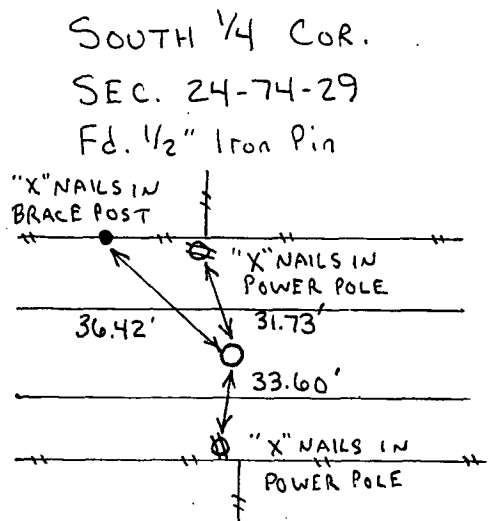 SOUTH 1/4 COR.
SEC. 24-74-29
Fd. 1/2" Iron Pin
"X" NAILS IN
BRACE POST
"X" NAILS IN
POWER POLE
36.42'
31.73'
33.60'
"X" NAILS IN
POWER POLE